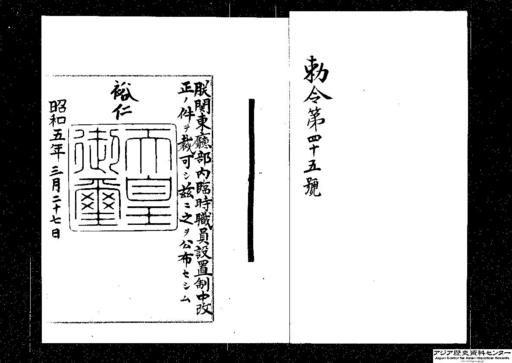 勅令第四十五號
朕関東廳部内臨時職員設置制中改
正ノ件ヲ裁可シ茲ニ之ヲ公布セシム
裕仁
天皇
御璽
昭和五年三月二十七日
アジア歴史資料センター
Japan Center for Asian Historical Records